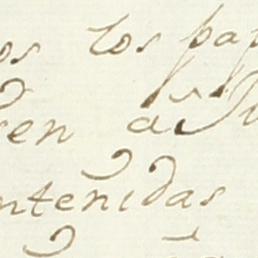 os los pap
ren a
ntenidas